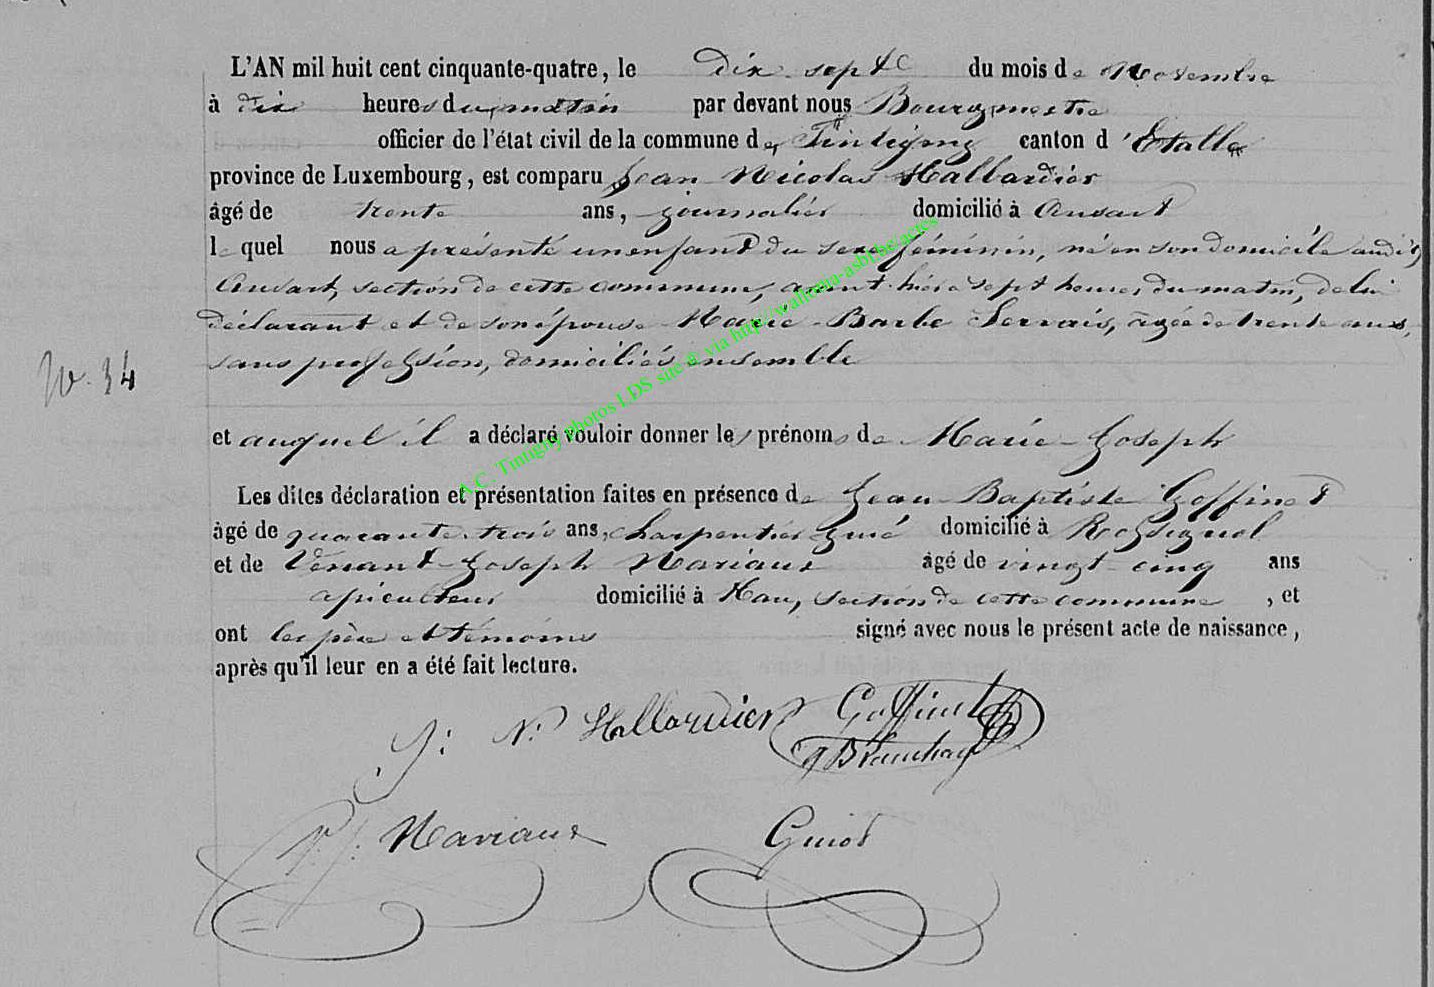 L'AN mil huit cent cinquante-quatre, le dix sept du mois de Novembre
à dix heures du matin par devant nous Bourgmestre
officier de l'état civil de la commune de Tintigny canton d'Etalle
province de Luxembourg, est comparu Jean Nicolas Hallardier
âgé de trente ans, journalier domicilié à Ansart
lequel nous a présenté un enfant du sexe féminin, né en son domicile audit
Ansart, section de cette commune, avant hier à sept heures du matin, de lui
déclarant et de son épouse Marie Barbe Servais, âgée de trente ans,
sans profession, domiciliés ensemble
N. 34
et auquel il a déclaré vouloir donner les prénoms de Marie-Joseph
Les dites déclaration et présentation faites en présence de Jean Baptiste Goffinet
âgé de quarante trois ans, charpentier domicilié à Rossignol
et de Venant Joseph Mariaux âgé de vingt cinq ans
apiculteur domicilié à Han, section de cette commune, et
ont les père et témoins signé avec nous le présent acte de naissance,
après qu'il leur en a été fait lecture.
J: N: Hallardier Goffinet
V. J. Mariaux
A.C. Tintigny photos LDS site et via http://wallonia-asbl.be/actes